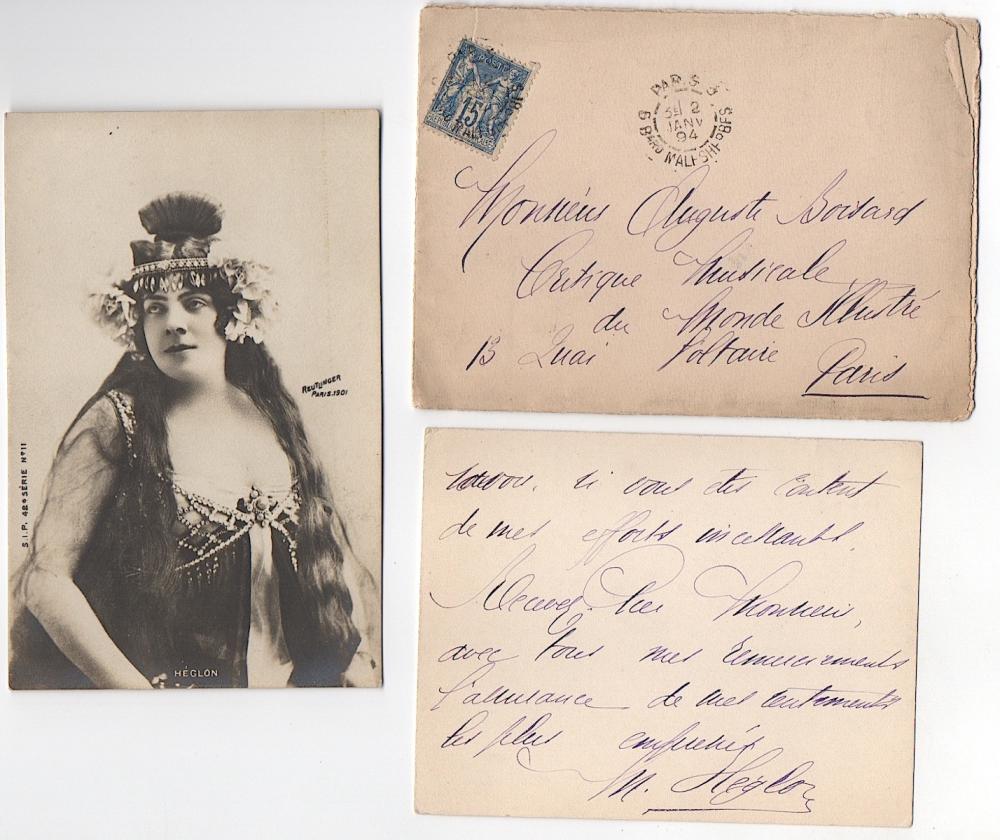 REUTLINGER
PARIS.1901
S.I.P. 42e SÉRIE N° 11
HÉGLON
15
PARIS
2
JANV
94
BARD MALESHERBES
Monsieur Auguste Boisard
Critique Musicale
du Monde Illustré
13 Quai Voltaire
Paris
savoir, si vous êtes content
de mes efforts incessants.
Recevez, cher Monsieur,
avec tous mes remerciements
l'assurance de mes sentiments
les plus empressés
M. Héglon